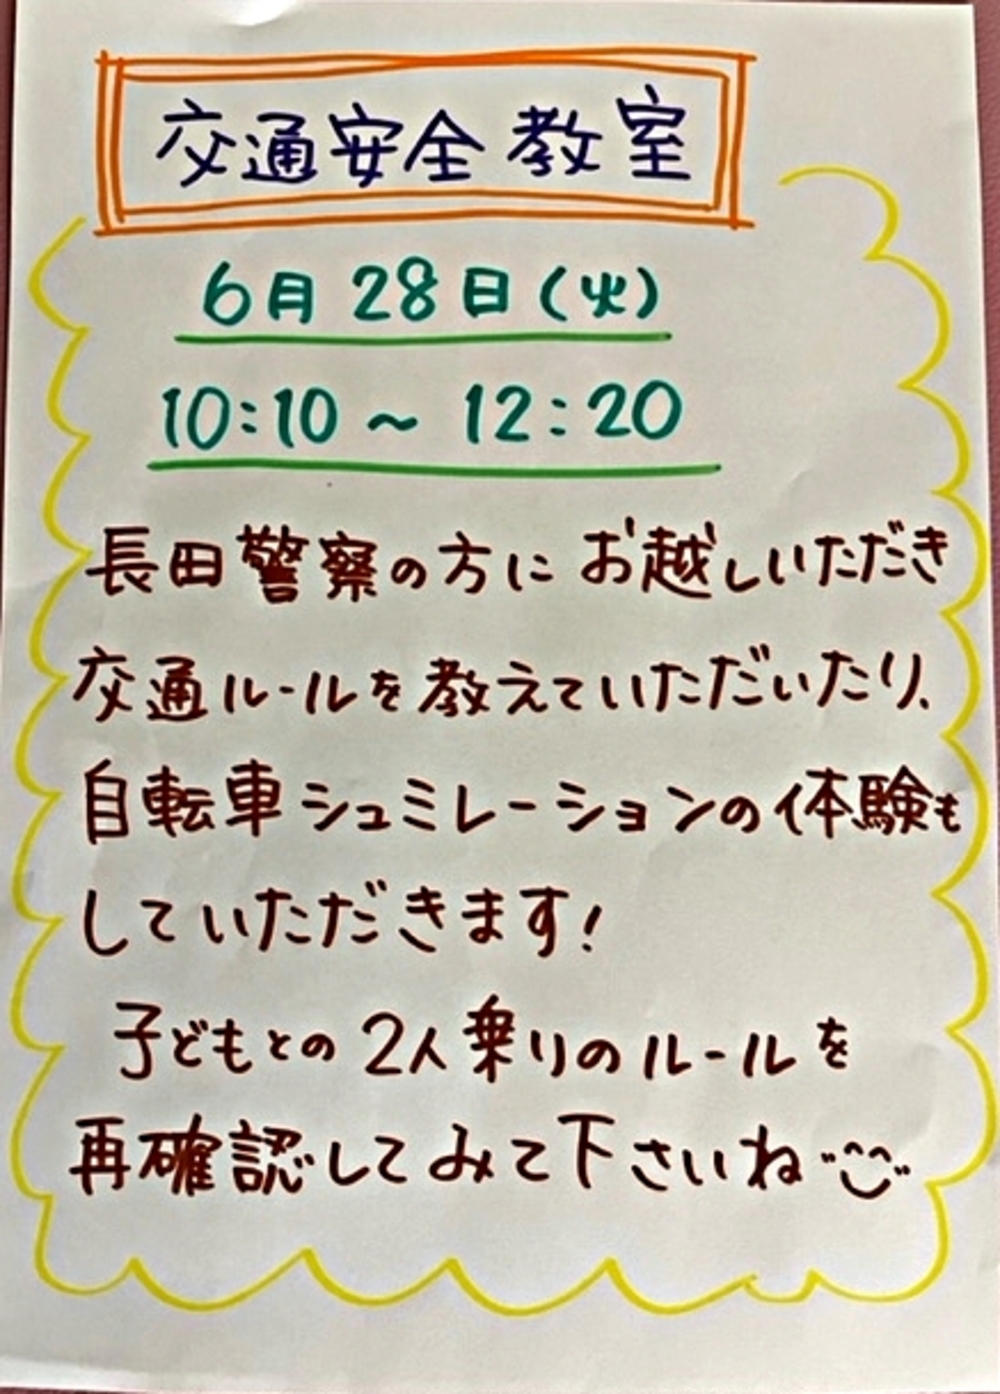 交通安全教室
6月28日(火)
10:10～12:20
長田警察の方にお越しいただき
交通ルールを教えていただいたり、
自転車シュミレーションの体験も
していただきます!
子どもとの2人乗りのルールを
再確認してみて下さいね